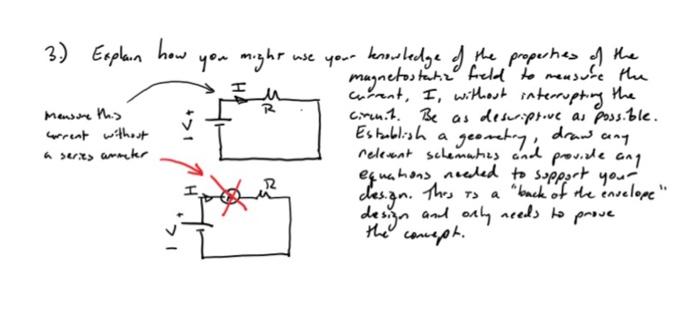 3.) Explain how you might use your knowledge of the properties of the
magnetostatic field to measure the
current, I, without interrupting the
circuit. Be as descriptive as possible.
Establish a geometry, draw any
relevant schematics and provide any
equations needed to support your
design. This is a "back of the envelope"
design and only needs to prove
the concept.
Measure this
current without
a series ammeter
I
R
+
V
-
I
A
R
+
V
-